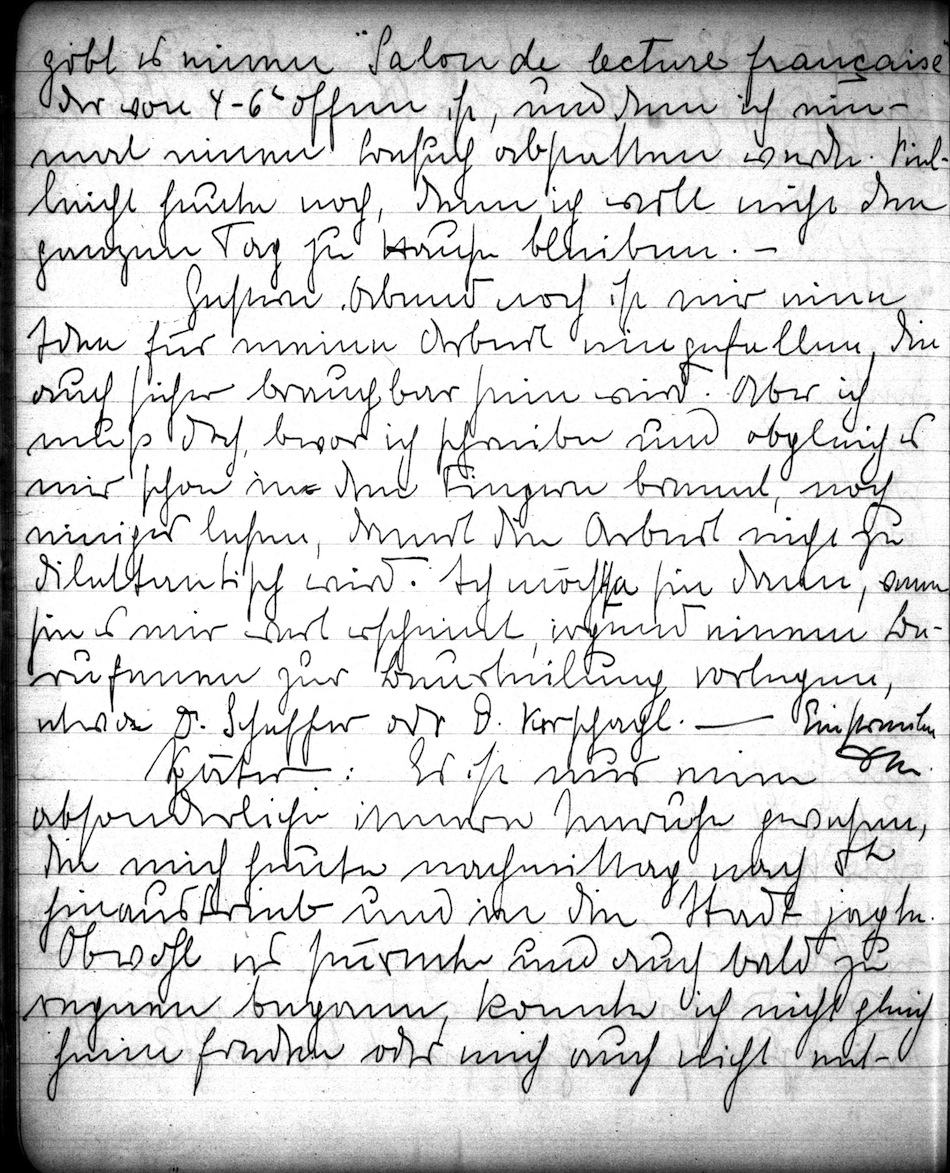 gibt es einen "Salon de lecture française
der von 4-6ʰ offen ist, und dem ich ein-
mal einen Besuch abstatten werde. Viel-
leicht heute noch, denn ich will nicht den
ganzen Tag zu Hause bleiben. —
Gestern Abend noch ist mir eine
Idee für meine Arbeit eingefallen, die
auch sicher brauchbar sein wird. Aber ich
muß doch, bevor ich schreibe und obgleich es
mir schon in den Fingern brennt, noch
einiges lesen, damit die Arbeit nicht zu
dilettantisch wird. Ich möchte sie dann, wenn
sie es mir wert erscheint, irgend einem Be-
rufenen zur Beurteilung vorlegen,
etwa D. Scheffer oder D. —
Später —: Es ist nur eine
absonderliche innere Unruhe gewesen,
die mich heute nachmittag nach 5ʰ
hinaustrieb und in die Stadt jagte.
Obwohl es stürmte und auch bald zu
regnen begann, konnte ich nicht gleich
heim finden oder mich auch nicht ent-